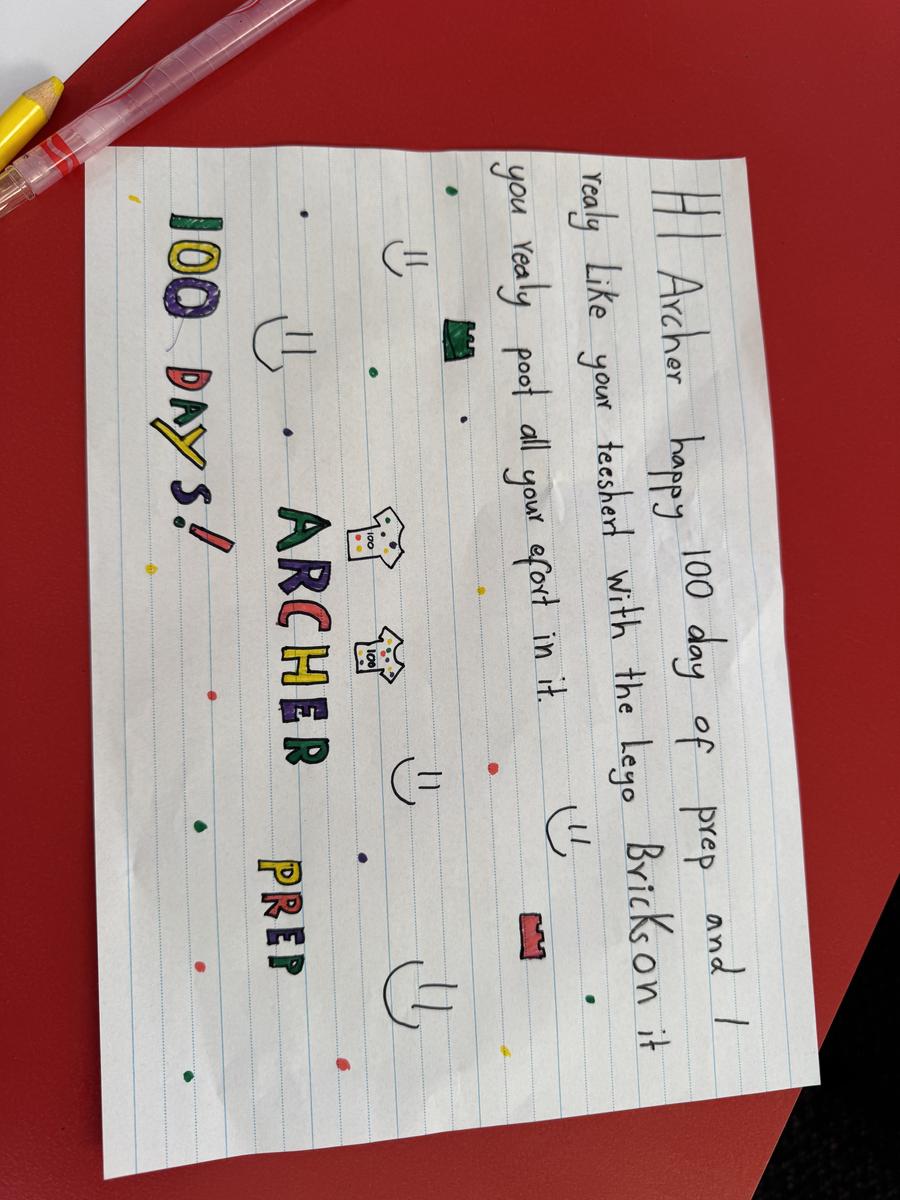 HI Archer happy 100 day of prep and I
realy Like your teeshert with the Lego Bricks on it
you realy poot all your efort in it.
100 100
ARCHER PREP
100 DAYS!